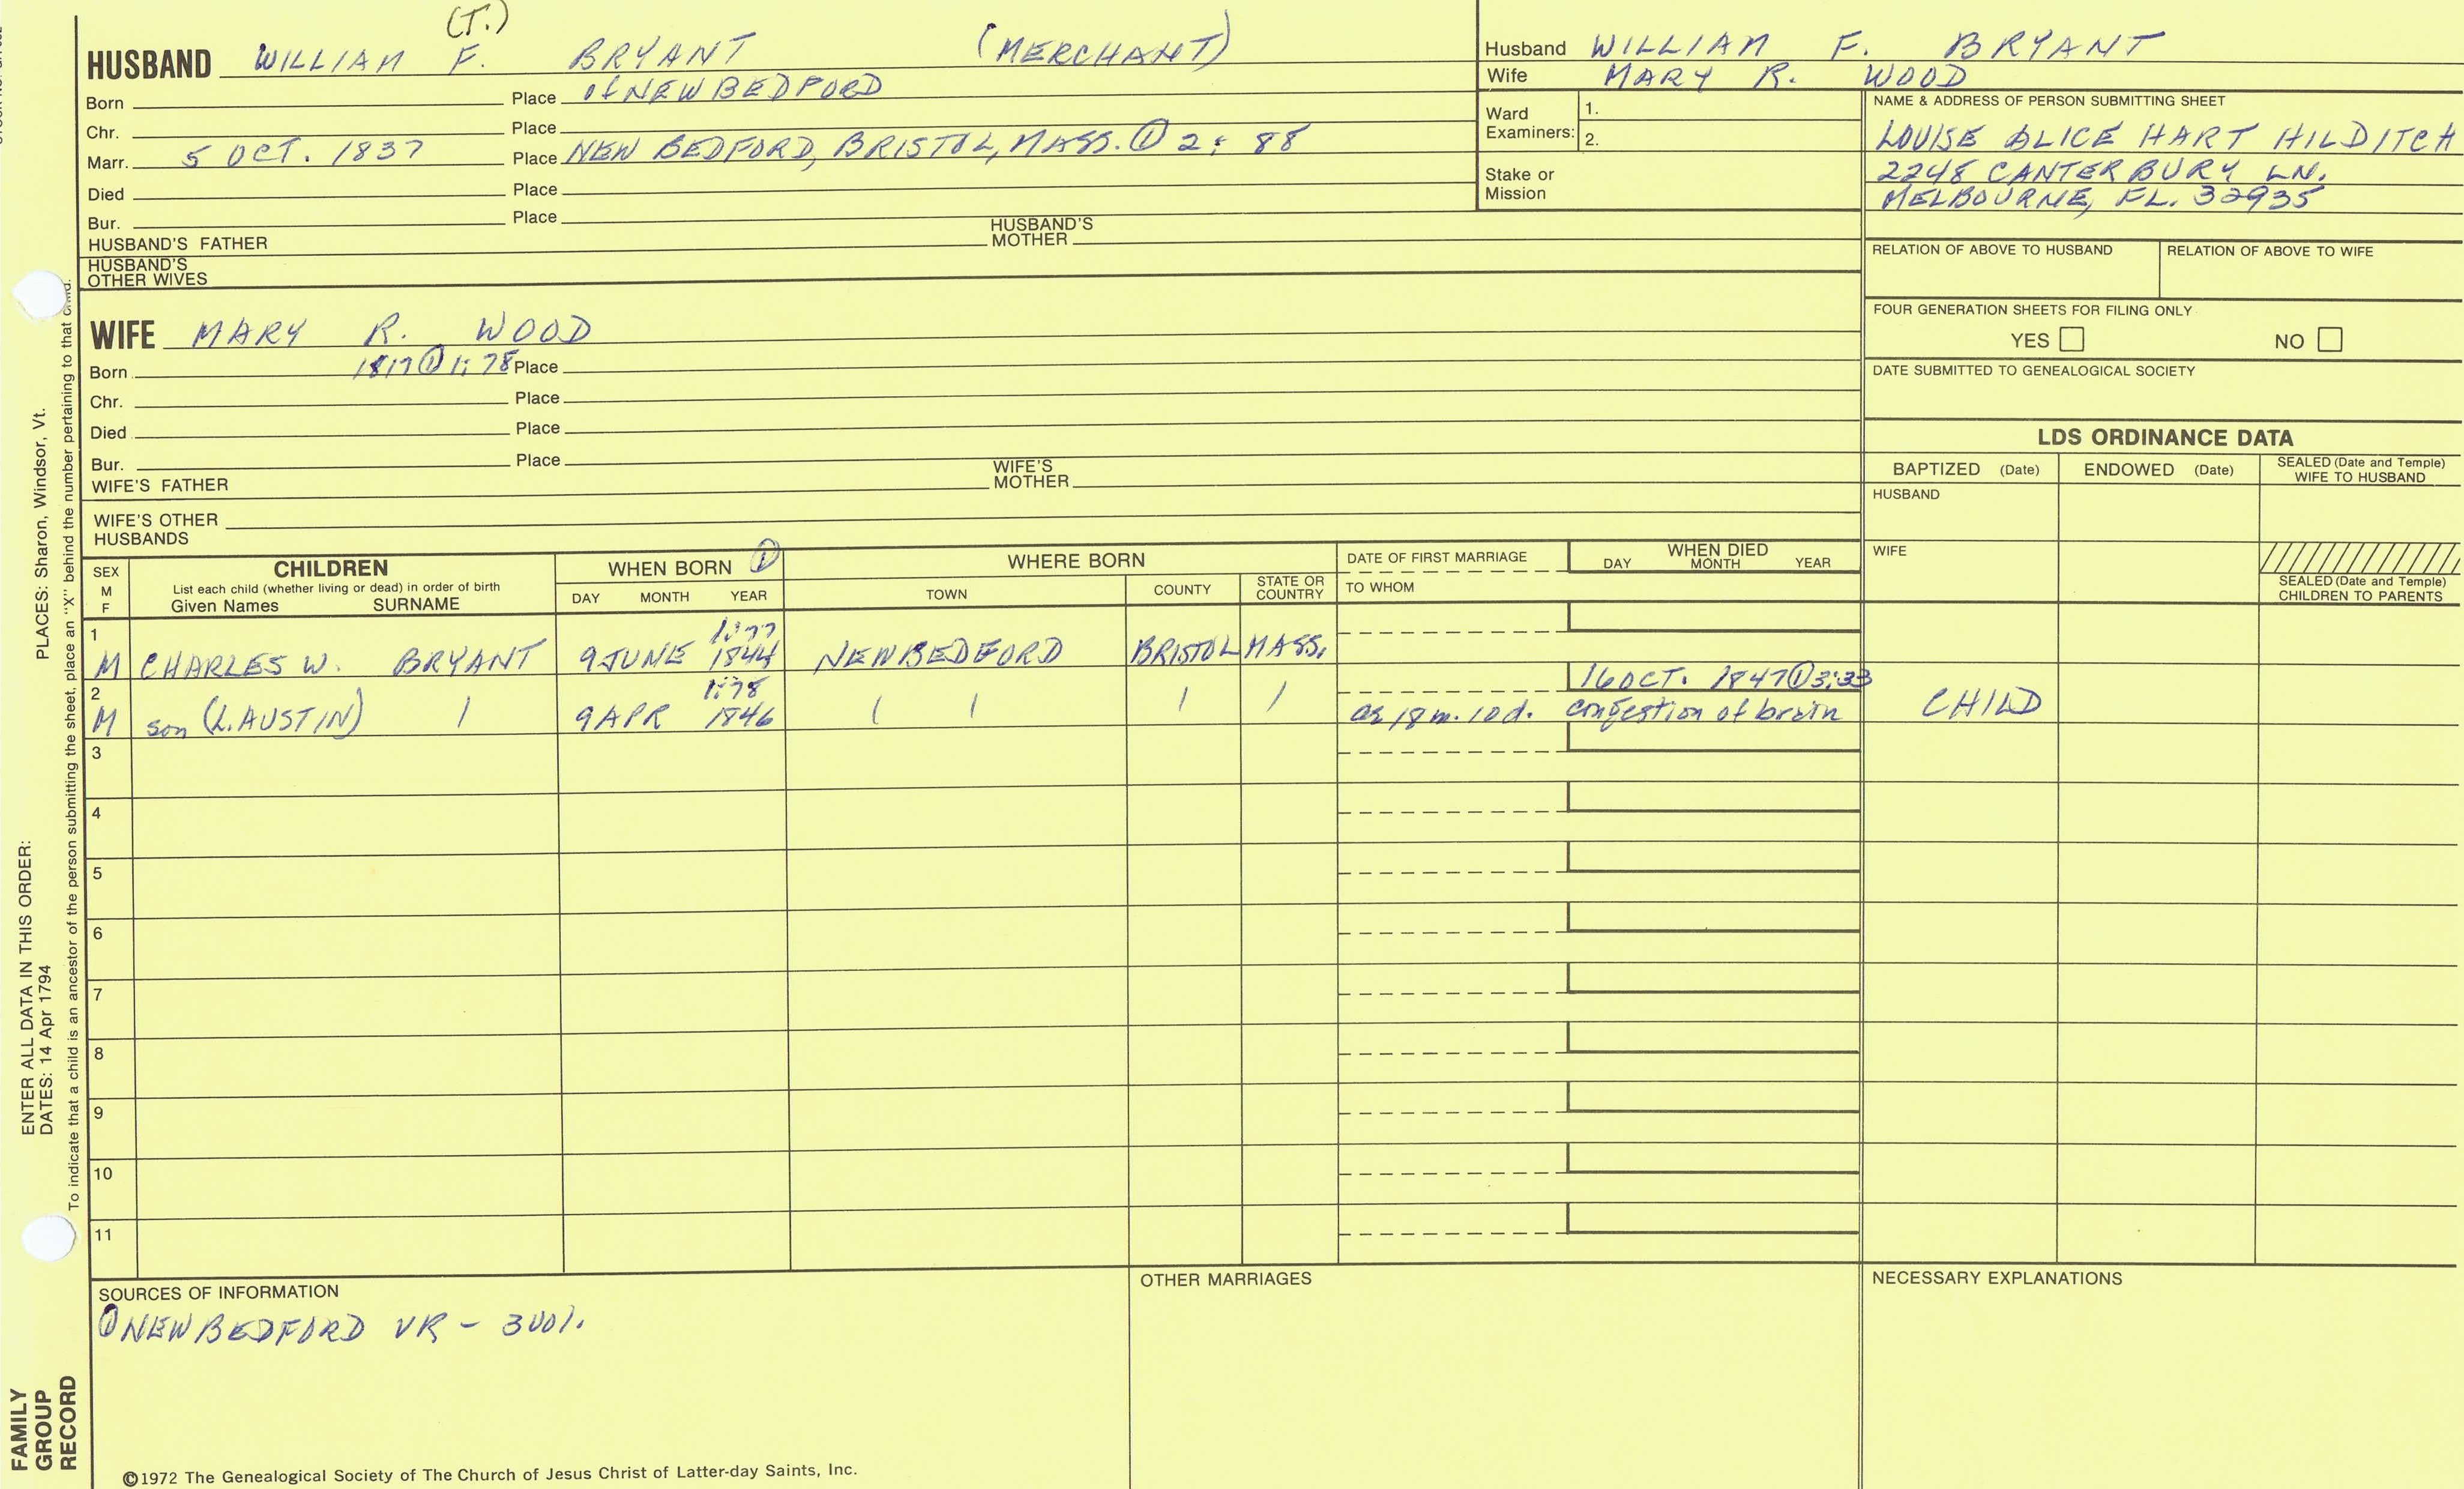 (T.)
HUSBAND WILLIAM F. BRYANT (MERCHANT)
Born Place of NEW BEDFORD
Chr. Place
Marr. 5 OCT. 1837 Place NEW BEDFORD, BRISTOL, MASS. ① 2: 88
Died Place
Bur. Place
HUSBAND'S FATHER HUSBAND'S MOTHER
HUSBAND'S OTHER WIVES
Husband WILLIAM F. BRYANT
Wife MARY R. WOOD
Ward Examiners: 1.
2.
Stake or Mission
NAME & ADDRESS OF PERSON SUBMITTING SHEET
LOUISE ALICE HART HILDITCH
2248 CANTERBURY LN.
MELBOURNE, FL. 32935
RELATION OF ABOVE TO HUSBAND RELATION OF ABOVE TO WIFE
FOUR GENERATION SHEETS FOR FILING ONLY
YES NO
DATE SUBMITTED TO GENEALOGICAL SOCIETY
WIFE MARY R. WOOD
Born 1817 ① 1: 78 Place
Chr. Place
Died Place
Bur. Place
WIFE'S FATHER WIFE'S MOTHER
WIFE'S OTHER HUSBANDS
LDS ORDINANCE DATA
BAPTIZED (Date) ENDOWED (Date) SEALED (Date and Temple) WIFE TO HUSBAND
HUSBAND
WIFE
SEALED (Date and Temple) CHILDREN TO PARENTS
SEX M F
CHILDREN
List each child (whether living or dead) in order of birth
Given Names SURNAME
WHEN BORN ①
DAY MONTH YEAR
WHERE BORN
TOWN COUNTY STATE OR COUNTRY
DATE OF FIRST MARRIAGE
TO WHOM
WHEN DIED
DAY MONTH YEAR
1 1:77
M CHARLES W. BRYANT 9 JUNE 1844 NEW BEDFORD BRISTOL MASS.
2 1:78 16 OCT. 1847 ① 3:33
M son (L. AUSTIN) / 9 APR 1846 / / / / ae 18 m. 10 d. congestion of brain CHILD
3
4
5
6
7
8
9
10
11
SOURCES OF INFORMATION
① NEW BEDFORD VR - 3 vol.
OTHER MARRIAGES
NECESSARY EXPLANATIONS
©1972 The Genealogical Society of The Church of Jesus Christ of Latter-day Saints, Inc.
FAMILY GROUP RECORD
ENTER ALL DATA IN THIS ORDER:
DATES: 14 Apr 1794
PLACES: Sharon, Windsor, Vt.
To indicate that a child is an ancestor of the person submitting the sheet, place an "X" behind the number pertaining to that child.